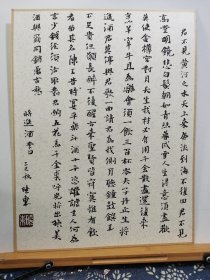 君不見黄河之水天上来奔流到海不復回君不見
高堂明鏡悲白髮朝如青絲暮成雪人生得意須盡歡
莫使金樽空對月天生我材必有用千金散盡還復来
烹羊宰牛且為樂會須一飲三百杯岑夫子丹丘生將
進酒君莫停與君歌一曲請君為我傾耳聽鐘鼓饌玉
不足貴但願長醉不復醒古来聖賢皆寂寞惟有飲
者留其名陳王昔時宴平樂斗酒十千恣歡謔主人何為
言少錢徑須沽取對君酌五花馬千金裘呼兒將出換美
酒與爾同銷萬古愁
將進酒 李白